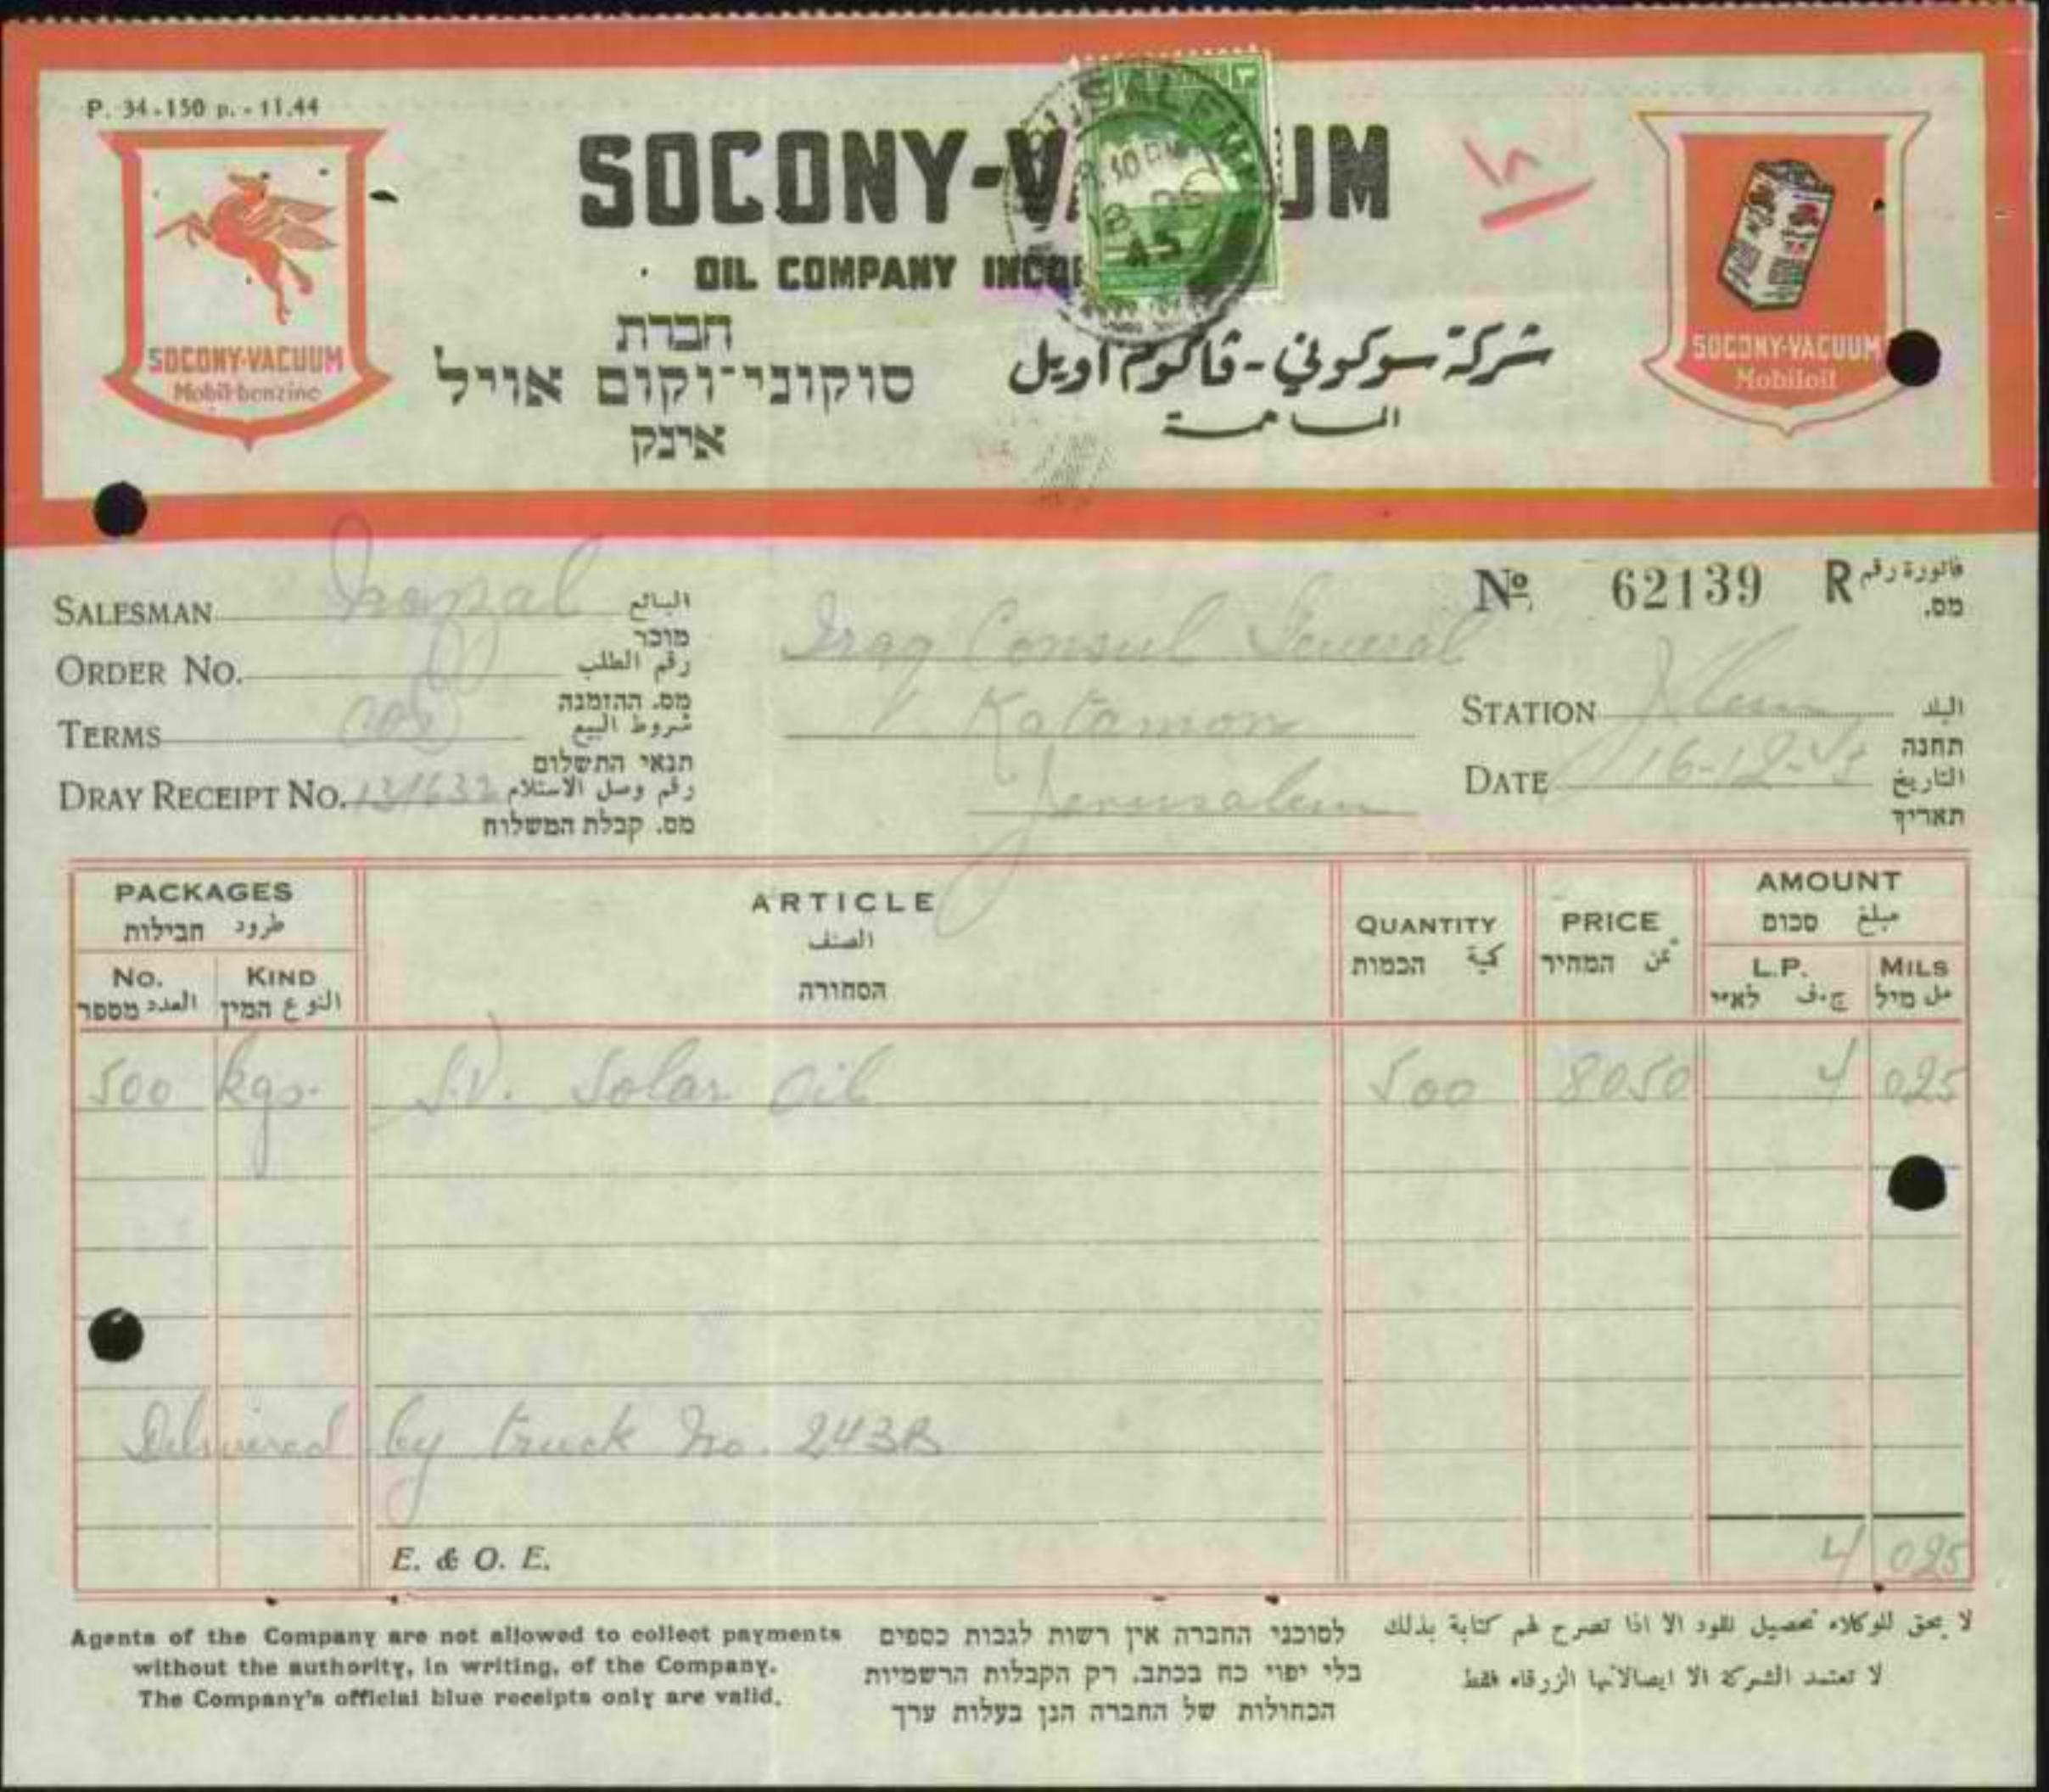 P. 34-150 p. - 11.44
SOCONY-VACUUM
OIL COMPANY
JERUSALEM
חברת
סוקוני־וקום אויל
אינק
شركة سوكوني - ڤاكوم اويل
المساهمة
SOCONY-VACUUM
Mobil-benzine
SOCONY-VACUUM
Mobiloil
№ 62139 R فاتورة رقم
מס.
SALESMAN البائع
מוכר
ORDER No. رقم الطلب
מס. ההזמנה
TERMS شروط البيع
תנאי התשלום
DRAY RECEIPT No. 131632 رقم وصل الاستلام
מס. קבלת המשלוח
Iraq Consul General
Katamon
Jerusalem
STATION J'lem البلد
תחנה
DATE 16-12-45 التاريخ
תאריך
PACKAGES
طرود חבילות
No. KIND
العدد מספר النوع המין
ARTICLE
الصنف
הסחורה
QUANTITY
كمية הכמות
PRICE
ثمن המחיר
AMOUNT
مبلغ סכום
L.P. MILS
ج.ف לא״י مل מיל
500 kgs. S.V. Solar Oil 500 8050 4 025
Delivered by truck No. 243B
E. & O. E. 4 025
Agents of the Company are not allowed to collect payments
without the authority, in writing, of the Company.
The Company's official blue receipts only are valid.
לסוכני החברה אין רשות לגבות כספים
בלי יפוי כח בכתב. רק הקבלות הרשמיות
הכחולות של החברה הנן בעלות ערך
لا يحق للوكلاء تحصيل نقود الا اذا تصرح لهم كتابة بذلك
لا تعتمد الشركة الا ايصالاتها الزرقاء فقط